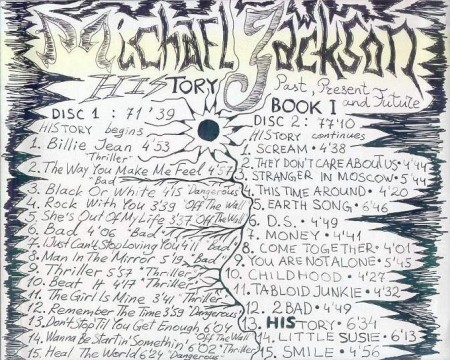 Michael Jackson
HISTORY Past, Present and Futute
BOOK I
DISC 1 : 71'39
HISTORY begins
1. Billie Jean 4'53 "Thriller"
2. The Way You Make Me Feel 4'57 "Bad"
3. Black Or White 4'15 "Dangerous"
4. Rock With You 3'39 "Off The Wall"
5. She's Out Of My Life 3'37 "Off The Wall"
6. Bad 4'06 "Bad"
7. I Just Can't Stop Loving You 4'11 "Bad"
8. Man In The Mirror 5'19 "Bad"
9. Thriller 5'57 "Thriller"
10. Beat It 4'17 "Thriller"
11. The Girl Is Mine 3'41 "Thriller"
12. Remember The Time 3'59 "Dangerous"
13. Don't Stop Til You Get Enough 6'04 "Off The Wall"
14. Wanna Be Startin' Somethin' 6'02 "Thriller"
15. Heal The World 6'24 "Dangerous"
DISC 2 : 77'10
HISTORY continues
1. SCREAM • 4'38
2. THEY DON'T CARE ABOUT US • 4'44
3. STRANGER IN MOSCOW • 5'44
4. THIS TIME AROUND • 4'20
5. EARTH SONG • 6'46
6. D.S. • 4'49
7. MONEY • 4'41
8. COME TOGETHER • 4'01
9. YOU ARE NOT ALONE • 5'45
10. CHILDHOOD • 4'27
11. TABLOID JUNKIE • 4'32
12. 2 BAD • 4'49
13. HISTORY • 6'34
14. LITTLE SUSIE • 6'13
15. SMILE • 4'56